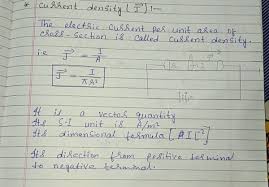 * Current density [J⃗] :-
The electric current per unit area of
cross-section is called current density.
i.e J⃗ = I/A
J⃗ = I/πR²
It is a vector quantity
Its S.I unit is A/m²
Its dimensional formula [AL⁻²]
Its direction from positive terminal
to negative terminal.